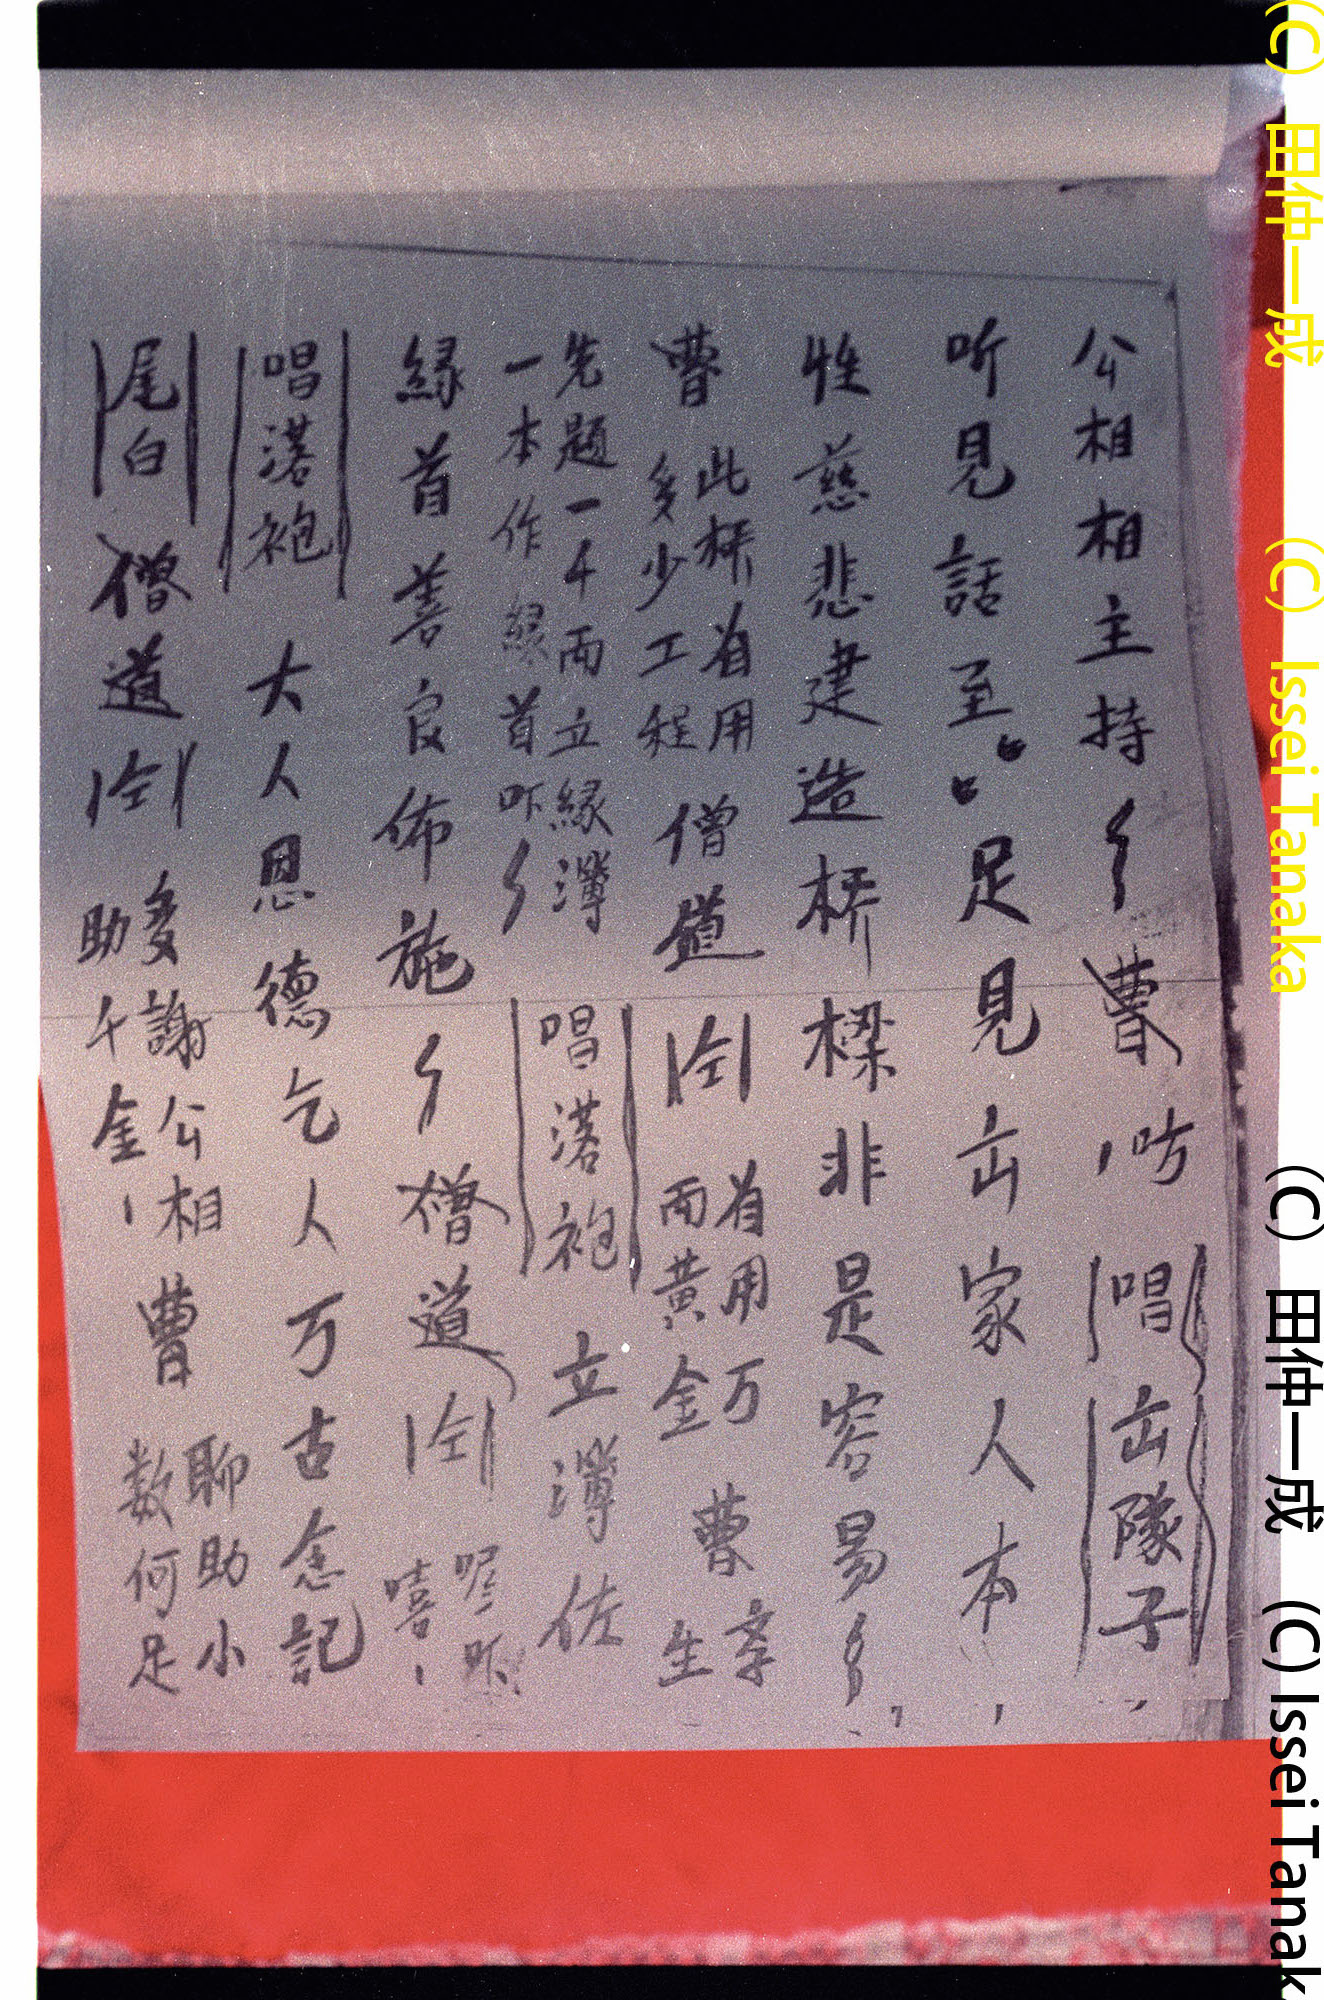 公相相主持〻曹咭、唱出隊子
听見話至〻足見出家人本
性慈悲建造桥樑非是容易〻
曹 此桥有用
多少工程
僧道 仝 有用万
両黃金
曹 幸
生
先題一千両立緣簿
一本作緣首吥〻
唱落袍 立簿佐
緣首善良佈施〻僧道 仝 喔吥
嘻、
唱落袍 大人恩德乞人万古念記
尾白 僧道 仝 多謝公相
助千金、
曹 聊助小
数何足
(C) 田仲一成 (C) Issei Tanaka (C) 田仲一成 (C) Issei Tanak